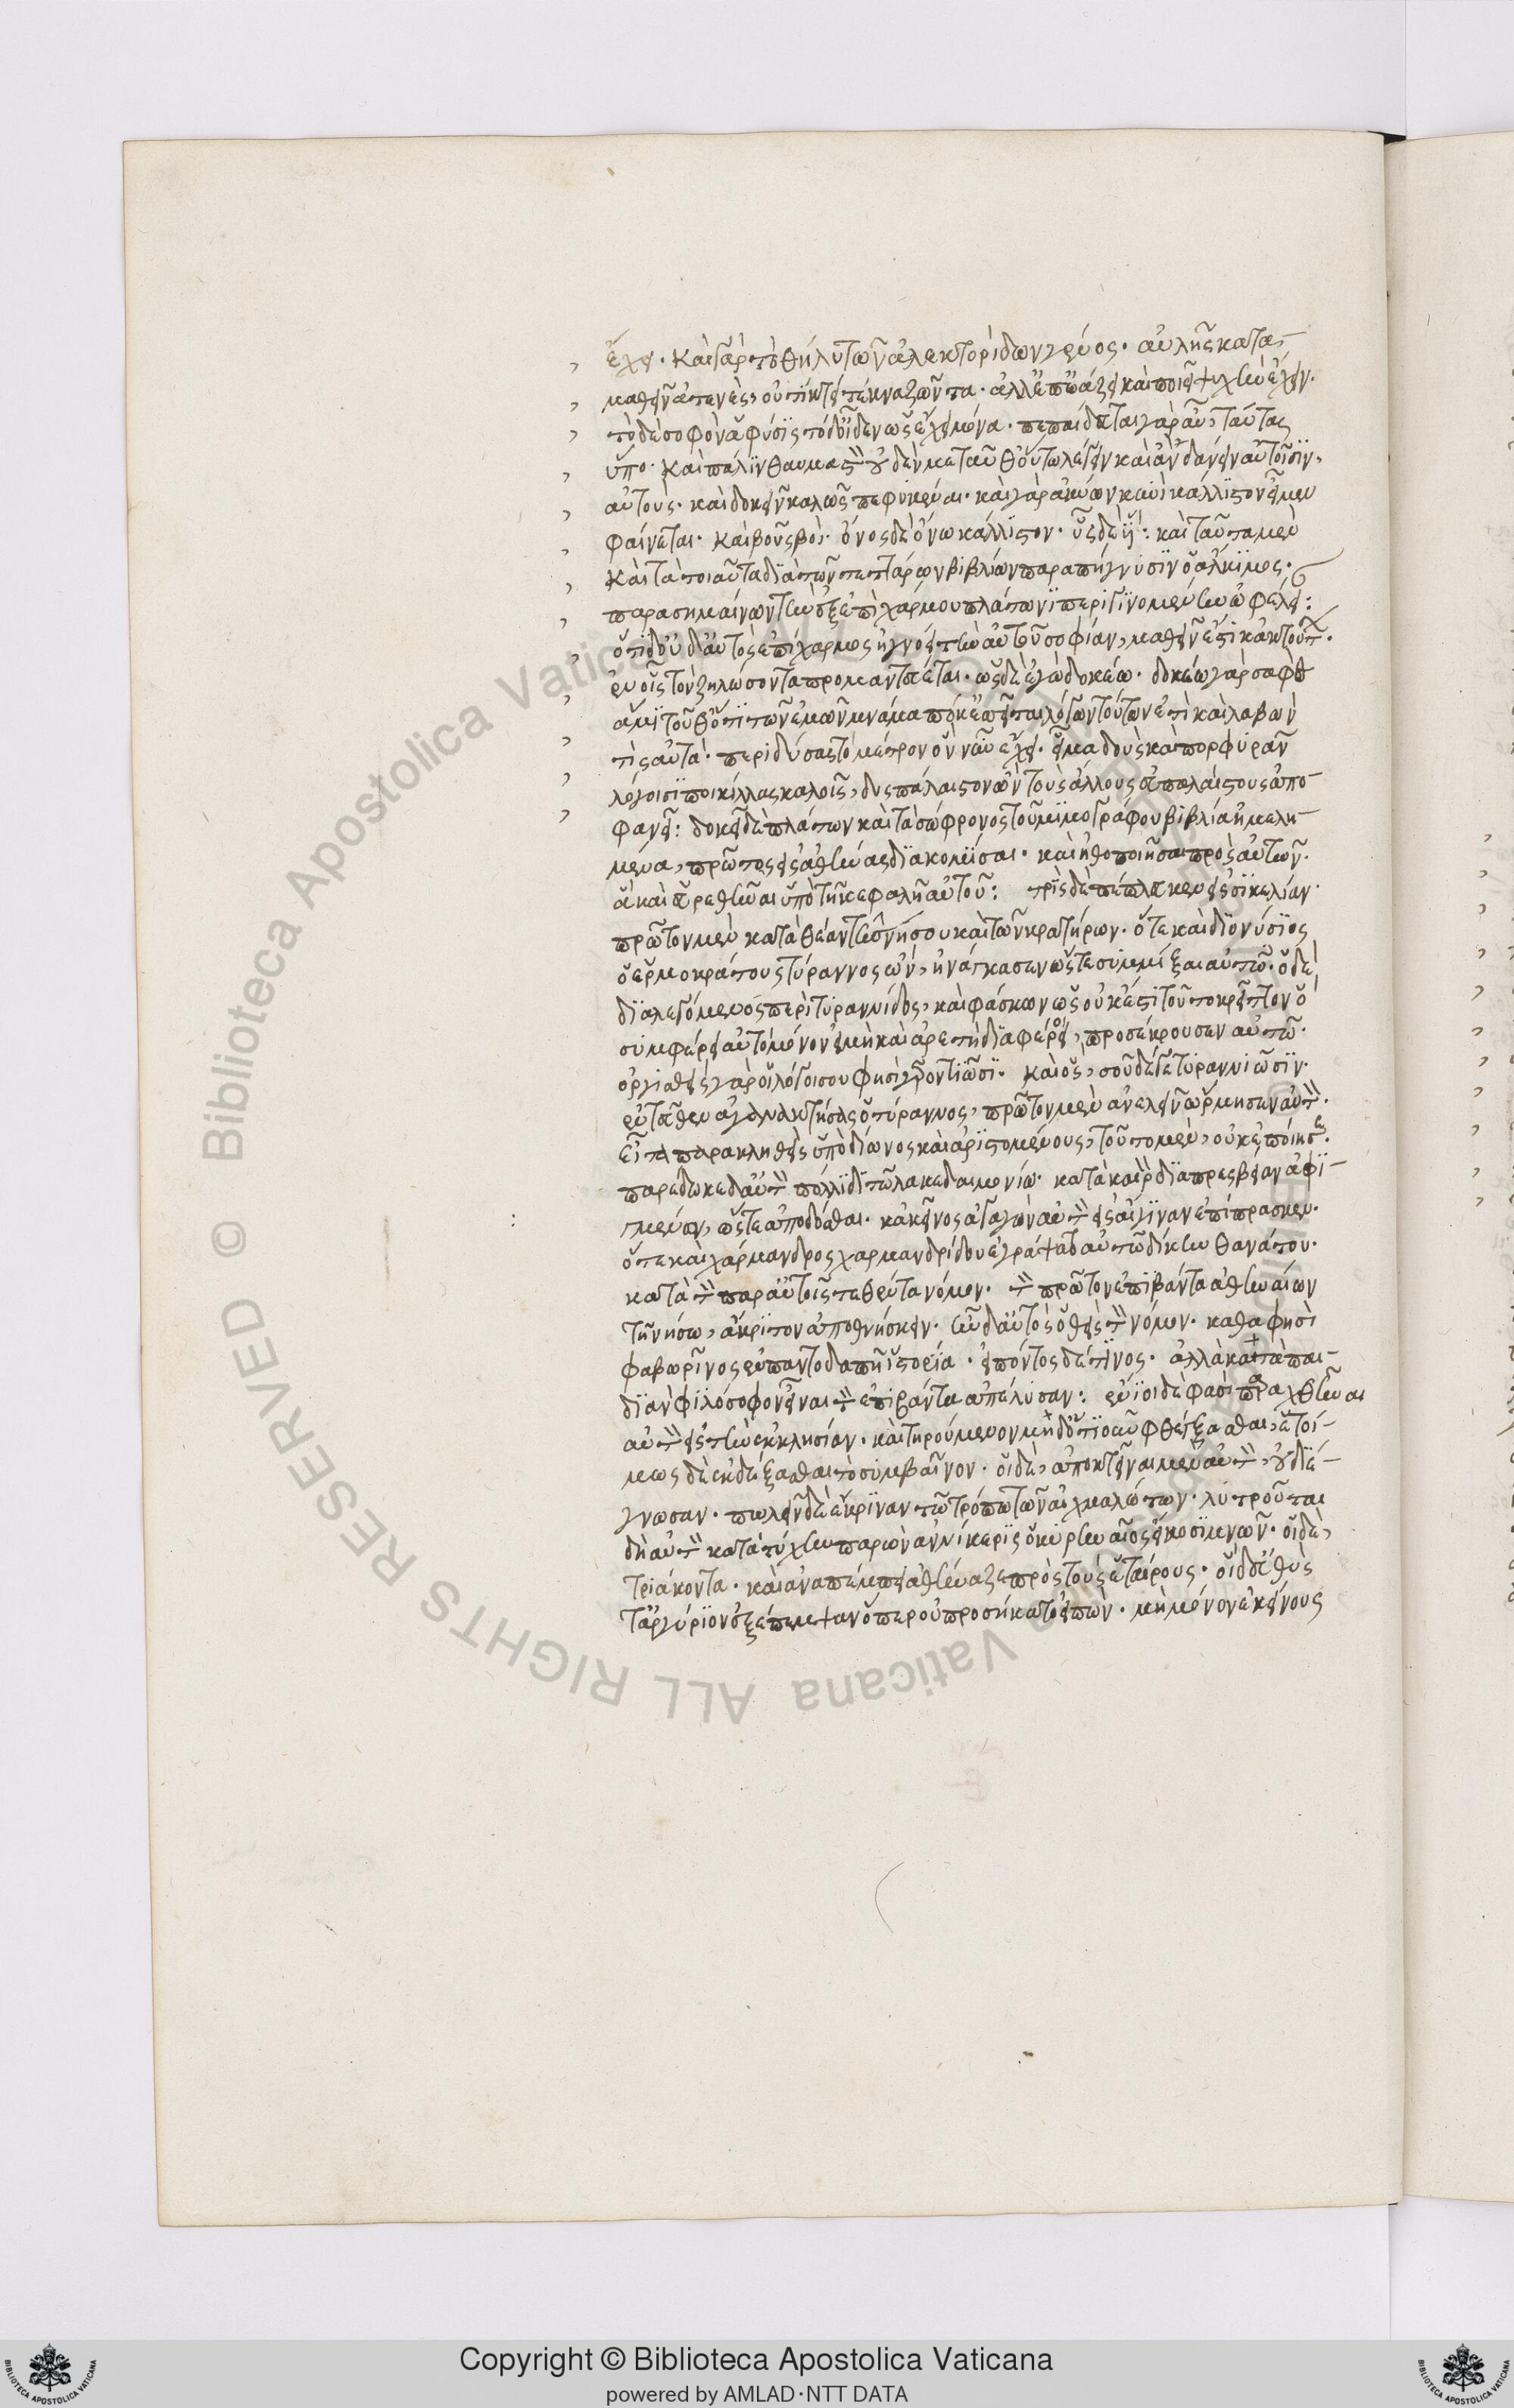 ἔχει. καὶ γὰρ τὸ θῆλυ τῶν ἀλεκτορίδων γένος. αἰ λῇς κατα-
μαθεῖν ἀτενὲς, οὐ τίκτει τέκνα ζῶντα. ἀλλ' ἐπωάζει καὶ ποιεῖ ψυχὴν ἔχειν.
τὸ δὲ σοφὸν ἁ φύσις τόδ' οἶδεν ὡς ἔχει μόνα. πεπαίδευται γὰρ αὖ, ταύτας
ὕπο. καὶ πάλιν θαυμαστὸν οὐδὲν με ταῦθ' οὕτω λέγειν καὶ ἁνδάνειν αὐτοῖσιν,
αὐτοὺς. καὶ δοκεῖν καλῶς πεφυκέναι. καὶ γὰρ ἁ κύων κυνὶ κάλλιστον εἶμεν
φαίνεται. καὶ βοῦς βοῒ. ὄνος δὲ ὄνω κάλλιστον. ὗς δὲ ὑΐ: καὶ ταῦτα μὲν
καὶ τὰ τοιαῦτα διὰ τῶν τεττάρων βιβλίων παραπήγνυσιν ὁ ἄλκιμος.
παρασημαίνων τὴν ἐξ ἐπιχάρμου πλάτωνι περιγινομένην ὠφέλει:
ὅτι δ' οὐδ' αὐτὸς ἐπίχαρμος ἠγνόει τὴν αὐτοῦ σοφίαν, μαθεῖν ἐστὶ κἀκ τούτ.
ἐν οἷς τὸν ζηλώσοντα προμαντεύεται. ὡς δὲ ἐγὼ δοκέω. δοκέω γὰρ σαφὲ
ἅμι τοῦθ' ὅτι τῶν ἐμῶν μνάμα ποκ' ἐσεῖται λόγων τούτων ἔτι καὶ λαβὼν
τὶς αὐτὰ. περιδύσας τὸ μέτρον ὃ νῦν ἔχει. εἷμα δοὺς κὰ πορφύραν
λόγοισι ποικίλλας καλοῖς, δυσπάλαιστον ὢν τοὺς ἄλλους εὐπαλαίστους ἀπο-
φανεῖ: δοκεῖ δὲ πλάτων καὶ τὰ σώφρονος τοῦ μιμογράφου βιβλία ἠμελη-
μένα, πρῶτος εἰς ἀθήνας διακομίσαι. καὶ ἠθοποιῆσαι πρὸς αὐτῶν.
ἃ καὶ εὑρεθῆναι ὑπὸ τῇ κεφαλῇ αὐτοῦ: τρὶς δὲ πέπλευκεν εἰς σικελίαν.
πρῶτον μὲν κατὰ θέαν τῆς νήσου καὶ τῶν κρατήρων. ὅτε καὶ διονύσιος
ὁ ἑρμοκράτους τύραννος ὢν, ἠνάγκασεν ὥστε συμμίξαι αὐτῷ. ὁ δὲ
διαλεγόμενος περὶ τυραννίδος, καὶ φάσκων ὡς οὐκ ἔστι τοῦτο κρεῖττον ὃ
συμφέρει αὐτὸ μόνον εἰ μὴ καὶ ἀρετῇ διαφέροι, προσέκρουσεν αὐτῷ.
ὀργισθεὶς γὰρ οἱ λόγοι σου φησὶ γεροντιῶσι. καὶ ὃς, σοῦ δέ γε τυραννιῶσιν.
ἐντεῦθεν ἀγανακτήσας ὁ τύραννος, πρῶτον μὲν ἀνελεῖν ὥρμησεν αὐτὸν.
εἶτα παρακληθεὶς ὑπὸ δίωνος καὶ ἀριστομένους, τοῦτο μὲν, οὐκ ἐποίησε.
παρέδωκε δ' αὐτὸν πόλλιδι τῷ λακεδαιμονίῳ. κατὰ καιρὸ διὰ πρεσβείαν ἀφι-
γμένῳ, ὥστε ἀποδόσθαι. κἀκεῖνος ἀγαγὼν αὐτὸν εἰς αἴγιναν ἐπίπρασκεν.
ὅτε καὶ χάρμανδρος χαρμανδρίδου ἐγράψατο αὐτῷ δίκην θανάτου.
κατὰ τὸν παρ' αὐτοῖς τεθέντα νόμον. τὸν πρῶτον ἐπιβάντα ἀθηναίων
τῇ νήσω, ἄκριτον ἀποθνήσκειν. ἦν δ' αὐτὸς ὁ θεὶς τὸν νόμον. καθά φησὶ
φαβωρῖνος ἐν παντοδαπῇ ἱστορία. εἰπόντος δέ τινος. ἀλλὰ κατὰ παι-
διὰν φιλόσοφον εἶναι τὸν ἐπιβάντα ἀπέλυσαν: ἔνιοι δὲ φασὶ παραχθῆναι
αὐτὸν εἰς τὴν ἐκκλησίαν. καὶ τηρούμενον μηδ' ὁτιοῦν φθέγξασθαι, ἑτοί-
μως δὲ ἐκδέξασθαι τὸ συμβαῖνον. οἱ δὲ, ἀποκτεῖναι μὲν αὐτὸν, οὐ διέ-
γνωσαν. πωλεῖν δὲ ἔκριναν τῷ τρόπῳ τῶν αἰχμαλώτων. λυτροῦται
δὴ αὐτὸν κατὰ τύχην παρὼν ἀννίκερις ὁ κυρηναῖος εἴκοσι μνῶν. οἱ δὲ,
τριάκοντα. καὶ ἀναπέμπει ἀθήναζε πρὸς τοὺς ἑταίρους. οἱ δ' εὐθὺς
τἀργύριον ἐξέπεμψαν ὅπερ οὐ προσήκατο εἰπὼν. μὴ μόνον ἐκείνους
Copyright © Biblioteca Apostolica Vaticana
powered by AMLAD·NTT DATA
© Biblioteca Apostolica Vaticana ALL RIGHTS RESERVED